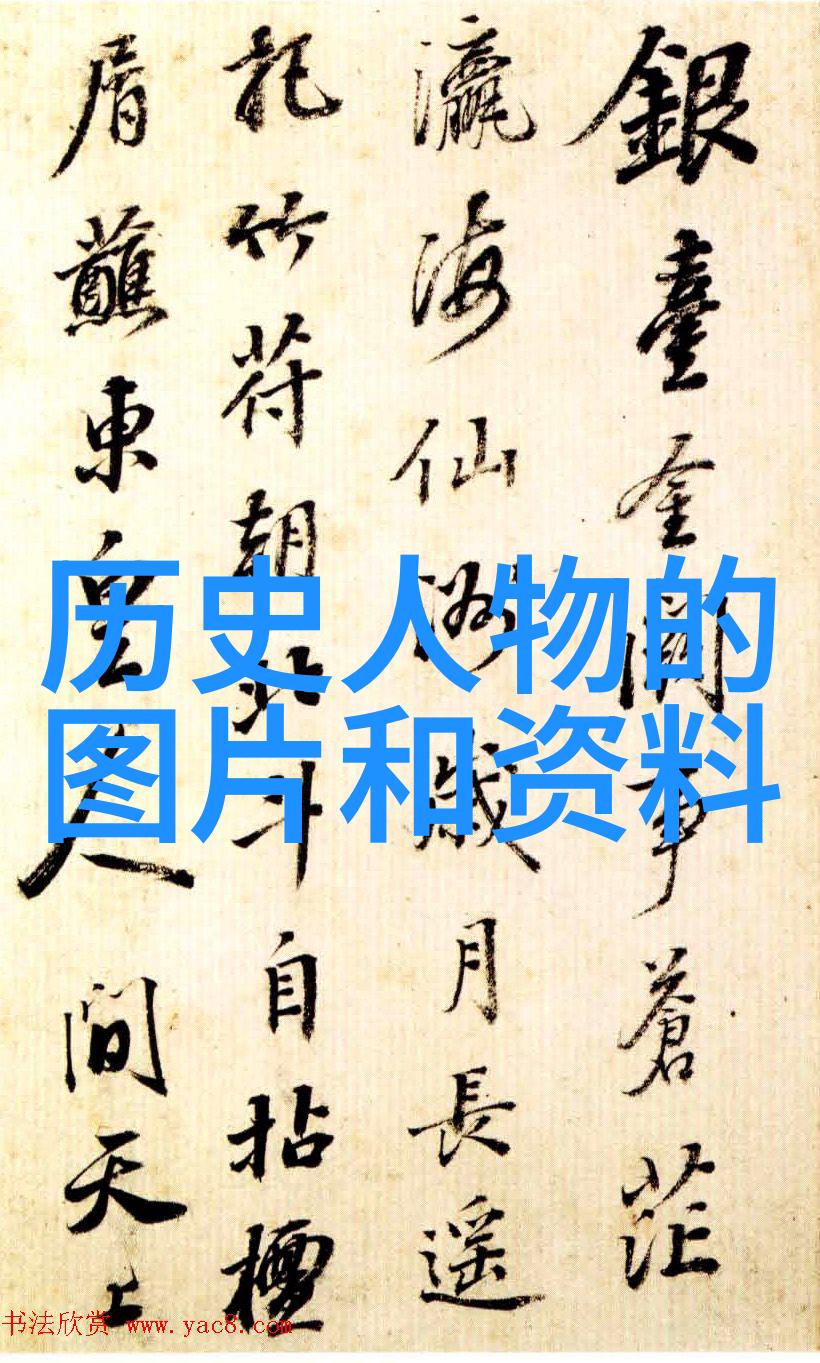 銀臺金闕事蒼茫
瀛海仙洲歲月長遥
竹符朝北斗自拈檀
屑蘸東皇人間天上
历史人物的
图片和资料
书法欣赏 www.yac8.com